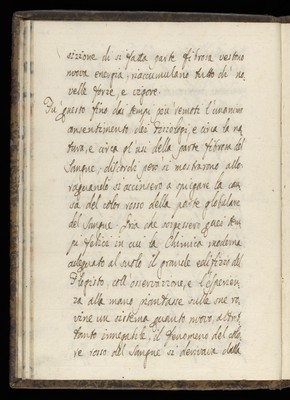 sizione di sì fatta parte fibrosa vestono
nuova energia, riaccumulano tutto dì no
velle forze, e vigore.
Fu questo fino dai tempi più remoti l'unanime
consentimento dei Fisiologi, e circa la na
tura, e circa gl'usi della parte fibrosa del
Sangue; discordi però si mostrarono, allo
raquando si accinsero a spiegare la cau
sa del color rosso della parte globulare
del Sangue. Pria che sorgessero quei tem
pi felici in cui la Chimica moderna
adeguato al suolo il grande edifizio del
Flogisto, coll'osservazione, e l'esperien
za alla mano piantasse sulle sue ro
vine un sistema quanto nuovo, altret
tanto innegabile, il fenomeno del colo
re rosso del Sangue si derivava dalla